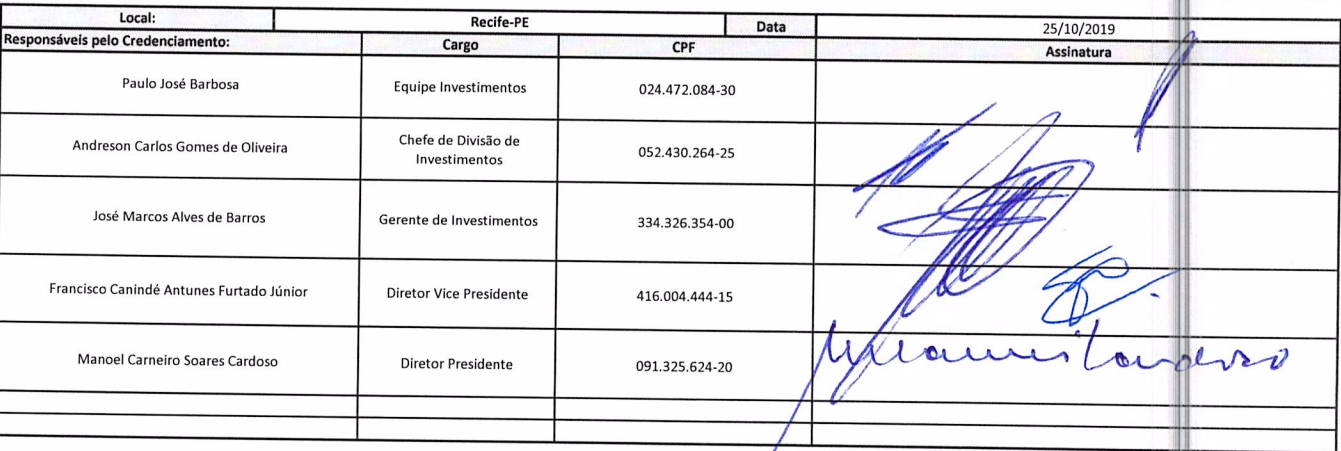 Local: Recife-PE Data 25/10/2019
Responsáveis pelo Credenciamento: Cargo CPF Assinatura
Paulo José Barbosa Equipe Investimentos 024.472.084-30
Andreson Carlos Gomes de Oliveira Chefe de Divisão de Investimentos 052.430.264-25
José Marcos Alves de Barros Gerente de Investimentos 334.326.354-00
Francisco Canindé Antunes Furtado Júnior Diretor Vice Presidente 416.004.444-15
Manoel Carneiro Soares Cardoso Diretor Presidente 091.325.624-20